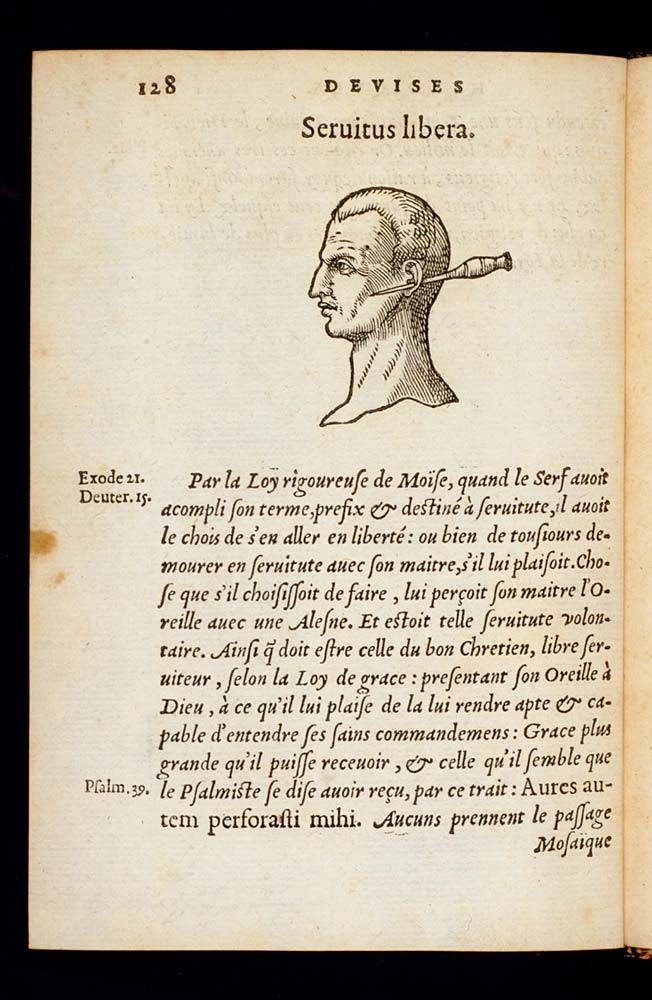 128 DEVISES
Seruitus libera.
Exode 21.
Deuter. 15.
Par la Loy rigoureuse de Moïse, quand le Serf auoit
acompli son terme, prefix & destiné à seruitute, il auoit
le chois de s'en aller en liberté: ou bien de tousiours de-
mourer en seruitute auec son maitre, s'il lui plaisoit. Cho-
se que s'il choisissoit de faire, lui perçoit son maitre l'O-
reille auec une Alesne. Et estoit telle seruitute volon-
taire. Ainsi q̃ doit estre celle du bon Chretien, libre ser-
uiteur, selon la Loy de grace: presentant son Oreille à
Dieu, à ce qu'il lui plaise de la lui rendre apte & ca-
pable d'entendre ses sains commandemens: Grace plus
grande qu'il puisse receuoir, & celle qu'il semble que
Psalm. 39. le Psalmiste se dise auoir reçu, par ce trait: Aures au-
tem perforasti mihi. Aucuns prennent le passage
Mosaïque